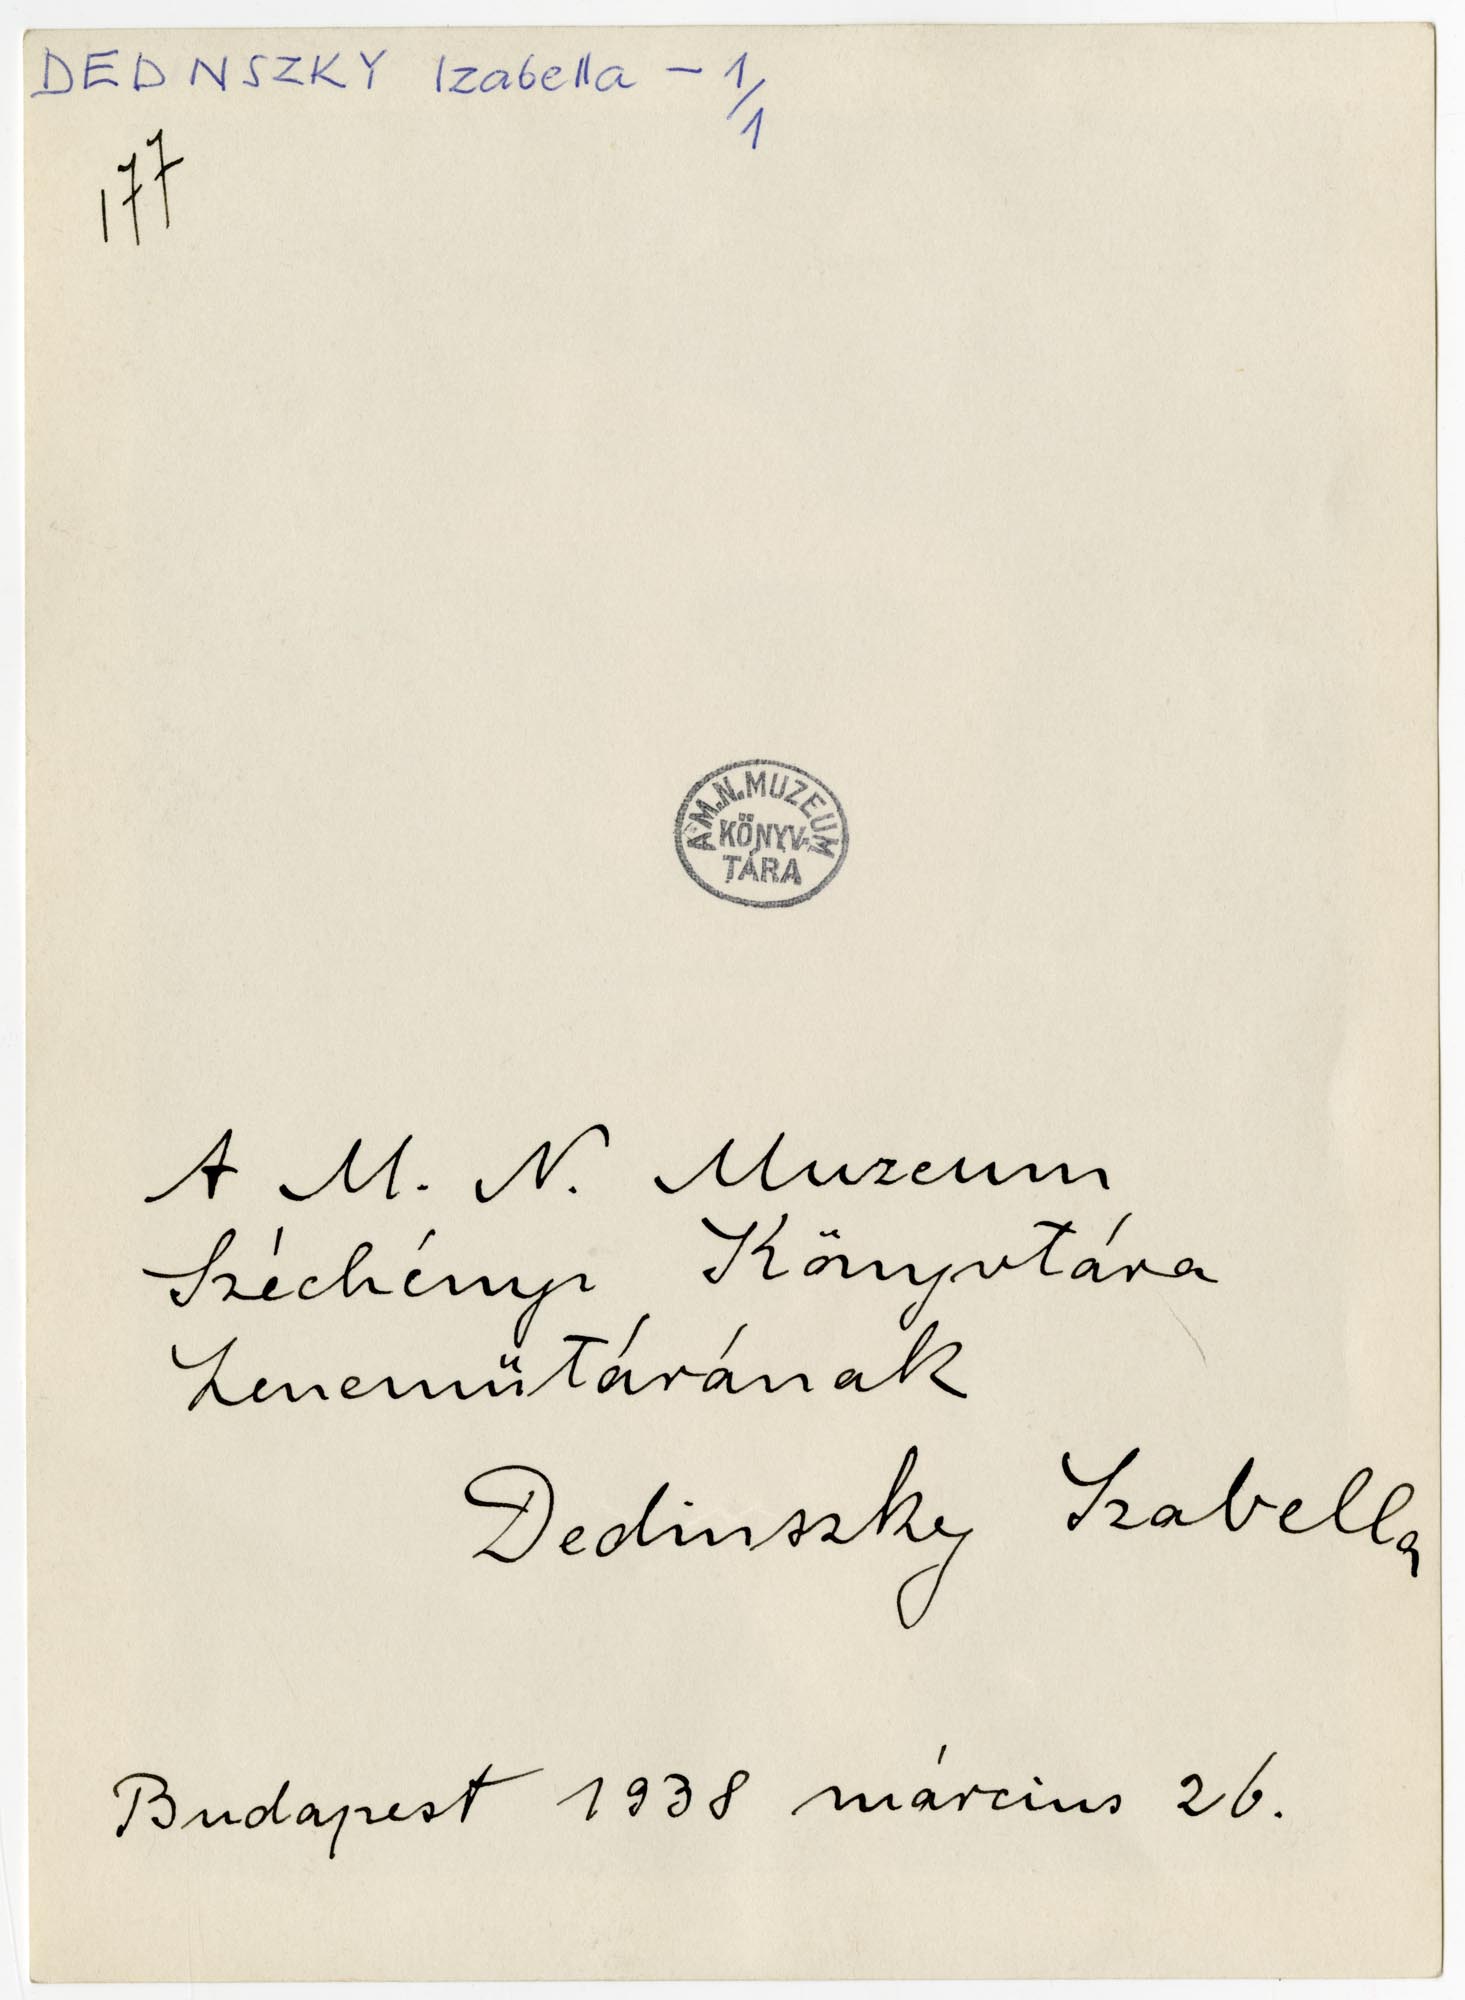 DEDNSZKY Izabella - 1/1
177
A M. N. MUZEUM
KÖNYV-
TÁRA
A M. N. Muzeum
Széchényi Könyvtára
Zeneműtárának
Dedinszky Izabella
Budapest 1938 március 26.